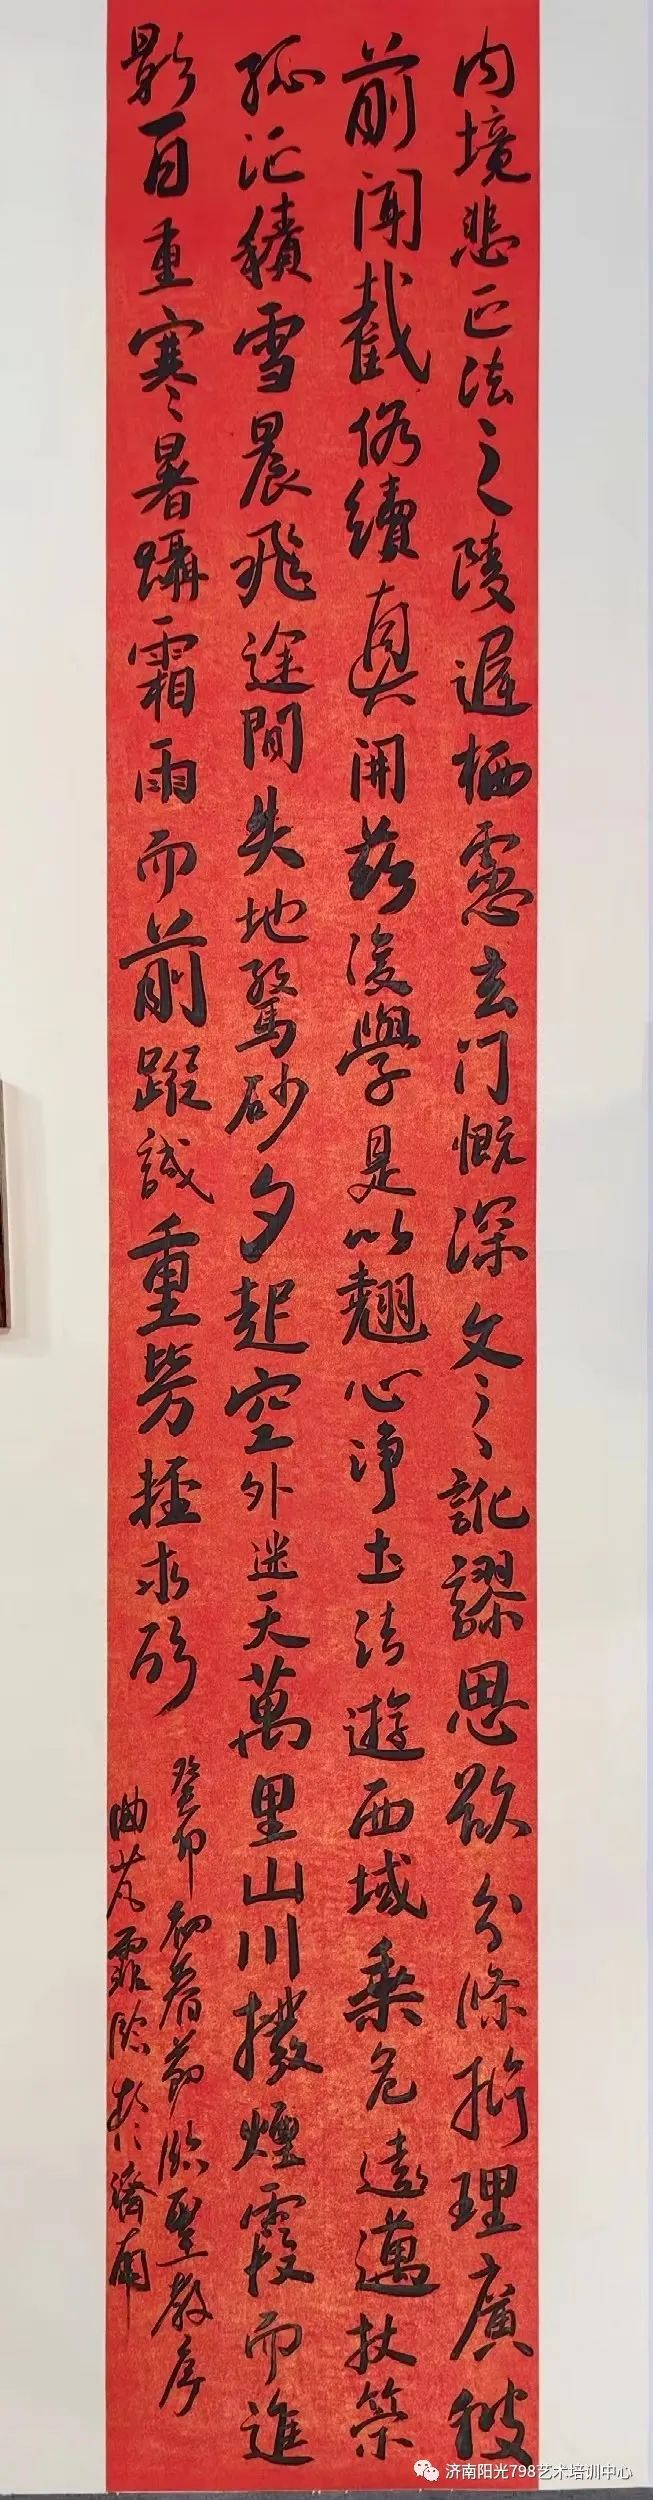 内境悲正法之陵遲栖慮玄門慨深文之訛謬思欲分條析理廣彼
前聞截偽續真開茲後學是以翹心淨土法遊西域乘危遠邁杖策
孤征積雪晨飛途間失地驚砂夕起空外迷天萬里山川撥煙霞而進
影百重寒暑躡霜雨而前蹤誠重勞輕求所
癸卯初春節臨聖教序
曲芃霏臨於濟南
济南阳光798艺术培训中心